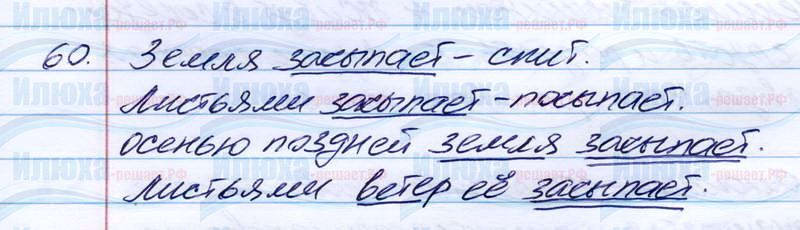 60. Земля засыпает – спит.
Листьями засыпает – посыпает.
осенью поздней земля засыпает.
Листьями ветер её засыпает.